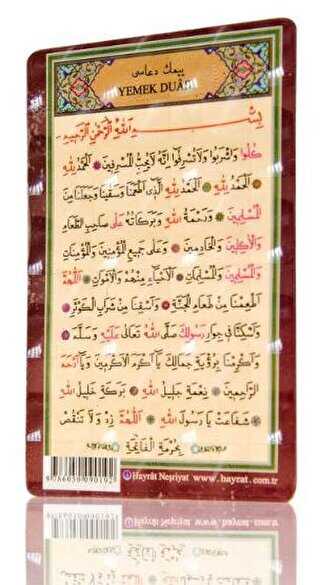 ييمك دعاسى
YEMEK DUÂSI
بِسْمِ اللهِ الرَّحْمٰنِ الرَّحِيمِ
كُلُوا وَاشْرَبُوا وَلَا تُسْرِفُوا اِنَّهُ لَا يُحِبُّ الْمُسْرِفِينَ ۞ اَلْحَمْدُ لِلّٰهِ
اَلْحَمْدُ لِلّٰهِ ۞ اَلْحَمْدُ لِلّٰهِ الَّذِى اَطْعَمَنَا وَسَقَينَا وَجَعَلَنَا مِنَ
الْمُسْلِمِينَ ۞ وَرَحْمَةُ اللهِ وَبَرَكَاتُهُ عَلٰى صَاحِبِ الطَّعَامِ
وَالْاٰكِلِينَ وَالْخَادِمِينَ ۞ وَعَلٰى جَمِيعِ الْمُؤْمِنِينَ وَالْمُؤْمِنَاتِ
وَالْمُسْلِمِينَ وَالْمُسْلِمَاتِ ۞ اَلْاَحْيَاءِ مِنْهُمْ وَالْاَمْوَاتِ ۞ اَللّٰهُمَّ
اَطْعِمْنَا مِنْ طَعَامِ الْجَنَّةِ ۞ وَاَسْقِنَا مِنْ شَرَابِ الْكَوْثَرِ ۞
وَاَسْكِنَّا فِى جِوَارِ رَسُولِكَ صَلَّى اللهُ تَعَالٰى عَلَيْهِ وَسَلَّمَ ۞
وَاَكْرِمْنَا بِرُؤْيَةِ جَمَالِكَ يَا اَكْرَمَ الْاَكْرَمِينَ وَيَا اَرْحَمَ
الرَّاحِمِينَ ۞ نِعْمَةِ جَلِيلُ اللهِ ۞ بَرَكَةِ خَلِيلُ اللهِ
۞ شَفَاعَتْ يَا رَسُولَ اللهِ ۞ اَللّٰهُمَّ زِدْ وَلَا تَنْقُصْ
بِحُرْمَةِ الْفَاتِحَةِ
9786050090192
Hayrât Neşriyat www.hayrat.com.tr